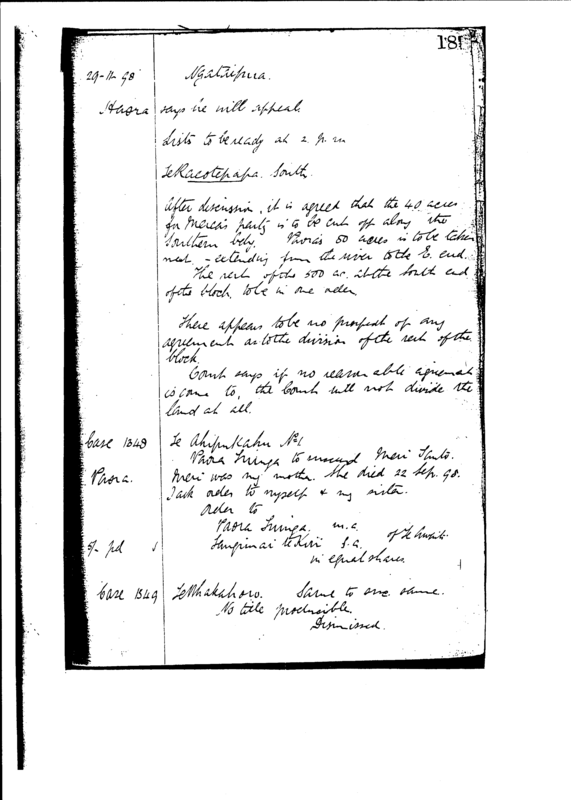 181
29-11-98 Ngataipua.
Haora says he will appeal.
Lists to be ready at 2 p.m
Te Racotepapa South
After discussion, it is agreed that the 40 acres
for Merea's party is to be cut off along the
Southern bdy. Paora's 50 acres is to be taken
next, - extending from the river to the E. end.
The rest of the 500 ac. at the South end
of the block to be in one order.
There appears to be no prospect of any
agreement as to the division of the rest of the
block.
Court says if no reasonable agreement
is come to, the Court will not divide the
land at all.
Case 1348 Te Ahipukahu No1
Paora Tiringa to succeed Meri
Paora. Meri was my mother. She died 22 Sep. 98.
I ask order to myself & my sister.
Order to
Paora Tiringa. m.a.
5/- pd s te Kiri f.a. of Te
in equal shares
Case 1349 Te Whakahoro. Same to same.
No title producible.
Dismissed.